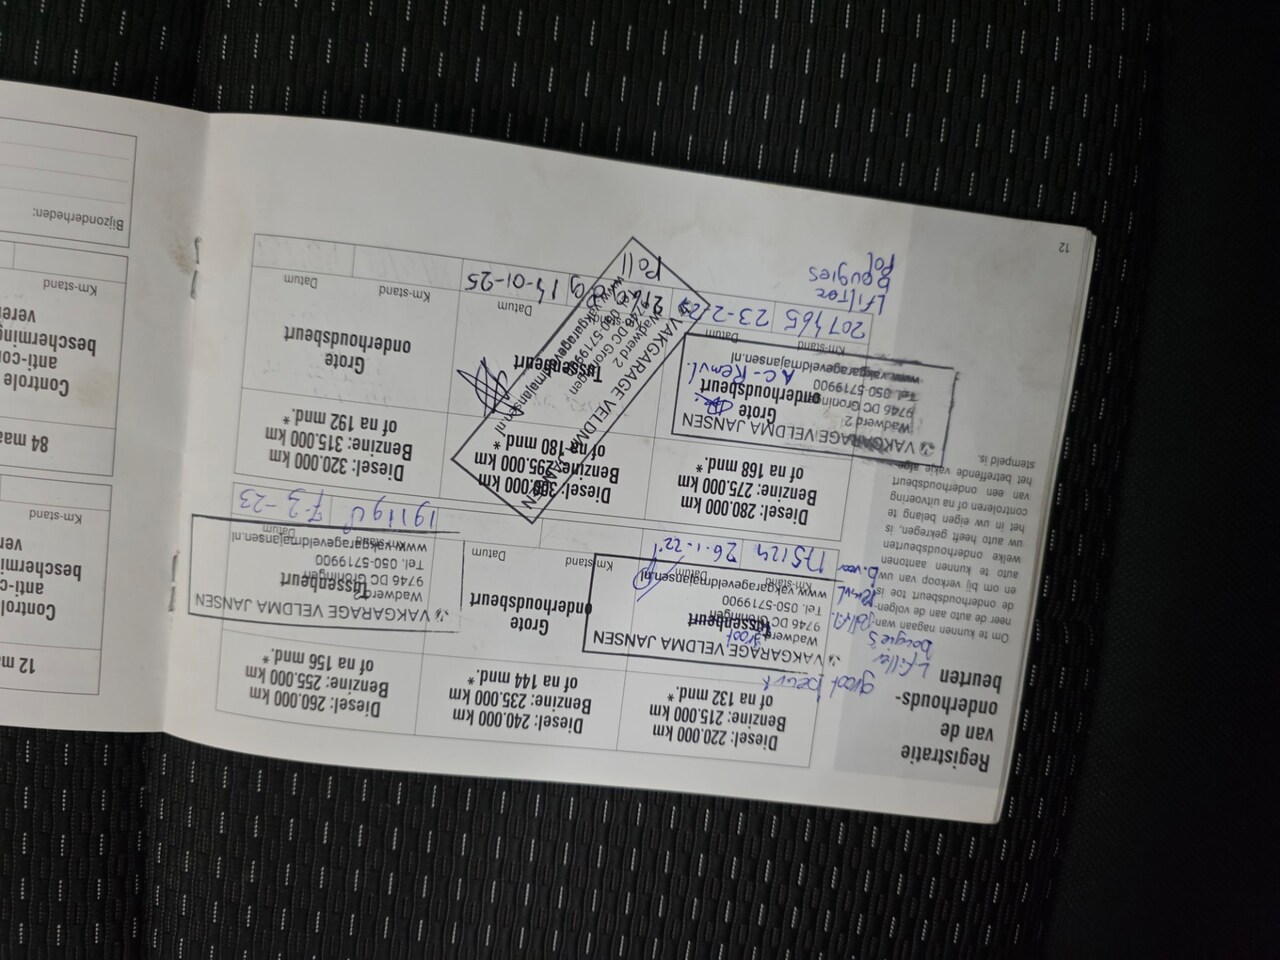 Registratie
van de
onderhouds-
beurten
Om te kunnen nagaan wan-
neer de auto aan de volgen-
de onderhoudsbeurt toe is
en om bij verkoop van uw
auto te kunnen aantonen
welke onderhoudsbeurten
uw auto heeft gekregen, is
het in uw eigen belang te
controleren of na uitvoering
van een onderhoudsbeurt
het betreffende vakje afge-
stempeld is.
groot beurt
L filter
bougie's
Remvl
Diesel: 220.000 km
Benzine: 215.000 km
of na 132 mnd. *
groot
Tussenbeurt
VAKGARAGE VELDMA JANSEN
Wadwerd 2
9746 DC Groningen
Tel. 050-5719900
www.vakgarageveldmajansen.nl
Km-stand
Datum
175124
26-1-22
Diesel: 240.000 km
Benzine: 235.000 km
of na 144 mnd. *
Grote
onderhoudsbeurt
Km-stand
Datum
Diesel: 260.000 km
Benzine: 255.000 km
of na 156 mnd. *
Tussenbeurt
VAKGARAGE VELDMA JANSEN
Wadwerd 2
9746 DC Groningen
Tel. 050-5719900
www.vakgarageveldmajansen.nl
Km-stand
Datum
Diesel: 280.000 km
Benzine: 275.000 km
of na 168 mnd. *
Grote
onderhoudsbeurt
AC-Remvl.
VAKGARAGE VELDMA JANSEN
Wadwerd 2
9746 DC Groningen
Tel. 050-5719900
www.vakgarageveldmajansen.nl
Km-stand
Datum
207465
Lfilter
Bougies
Pol
Diesel: 300.000 km
Benzine: 295.000 km
of na 180 mnd. *
Tussenbeurt
VAKGARAGE VELDMA JANSEN
Wadwerd 2
9746 DC Groningen
Tel. 050-5719900
www.vakgarageveldmajansen.nl
Datum
Poll
Diesel: 320.000 km
Benzine: 315.000 km
of na 192 mnd. *
Grote
onderhoudsbeurt
Km-stand
Datum
12
12 ma
Controle
anti-co
bescherming
ver
Km-stand
84 maa
Controle
anti-co
bescherming
vere
Km-stand
Bijzonderheden: